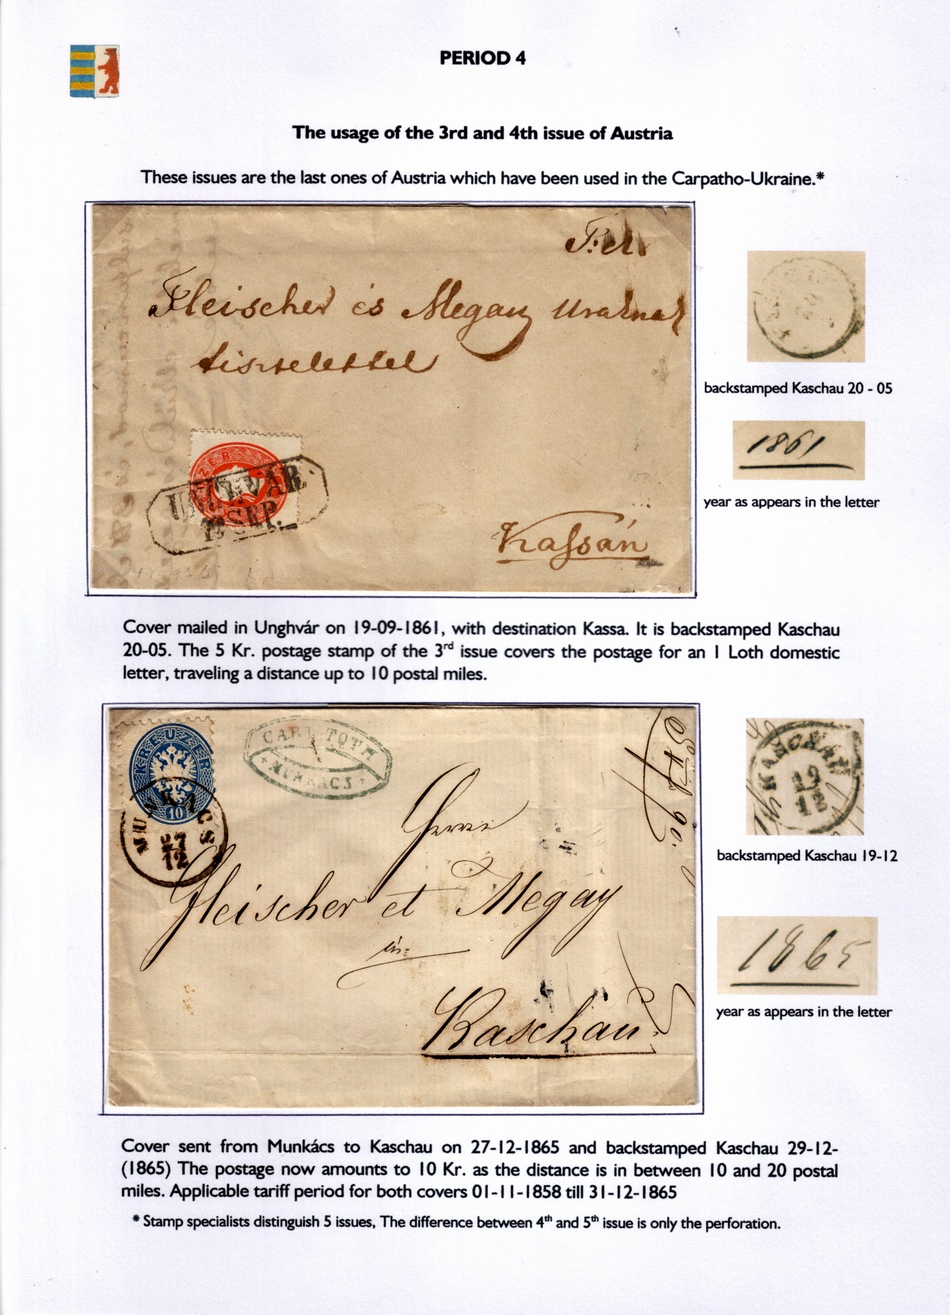 PERIOD 4
The usage of the 3rd and 4th issue of Austria
These issues are the last ones of Austria which have been used in the Carpatho-Ukraine.*
Fleischer és Megay Uraknak
tisztelettel
KREUZER
UNGHVÁR
19 SEP.
Kassán
backstamped Kaschau 20 - 05
1861
year as appears in the letter
Cover mailed in Unghvár on 19-09-1861, with destination Kassa. It is backstamped Kaschau
20-05. The 5 Kr. postage stamp of the 3rd issue covers the postage for an 1 Loth domestic
letter, traveling a distance up to 10 postal miles.
KREUZER
10
MUNKÁCS
27
12
CARL TOTH
MUNKACS
Herrn
Fleischer et Megay
in
Kaschau
KASCHAU
19
12
backstamped Kaschau 19-12
1865
year as appears in the letter
Cover sent from Munkács to Kaschau on 27-12-1865 and backstamped Kaschau 29-12-
(1865) The postage now amounts to 10 Kr. as the distance is in between 10 and 20 postal
miles. Applicable tariff period for both covers 01-11-1858 till 31-12-1865
* Stamp specialists distinguish 5 issues, The difference between 4th and 5th issue is only the perforation.